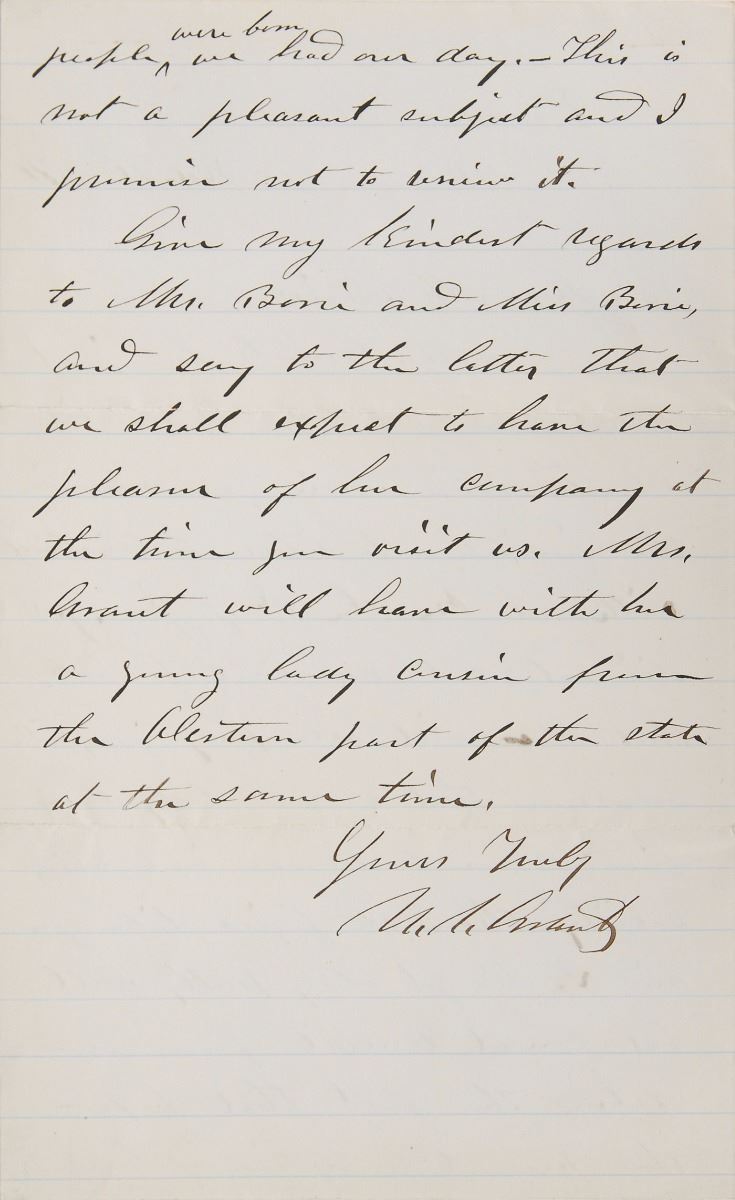 were born
people, ^ we had our day. – This is
not a pleasant subject and I
promise not to renew it.
Give my kindest regards
to Mrs. Borie and Miss Borie,
and say to the latter that
we shall expect to have the
pleasure of her company at
the time you visit us. Mrs.
Grant will have with her
a young lady cousin from
the Western part of the state
at the same time.
Yours Truly
U. S. Grant